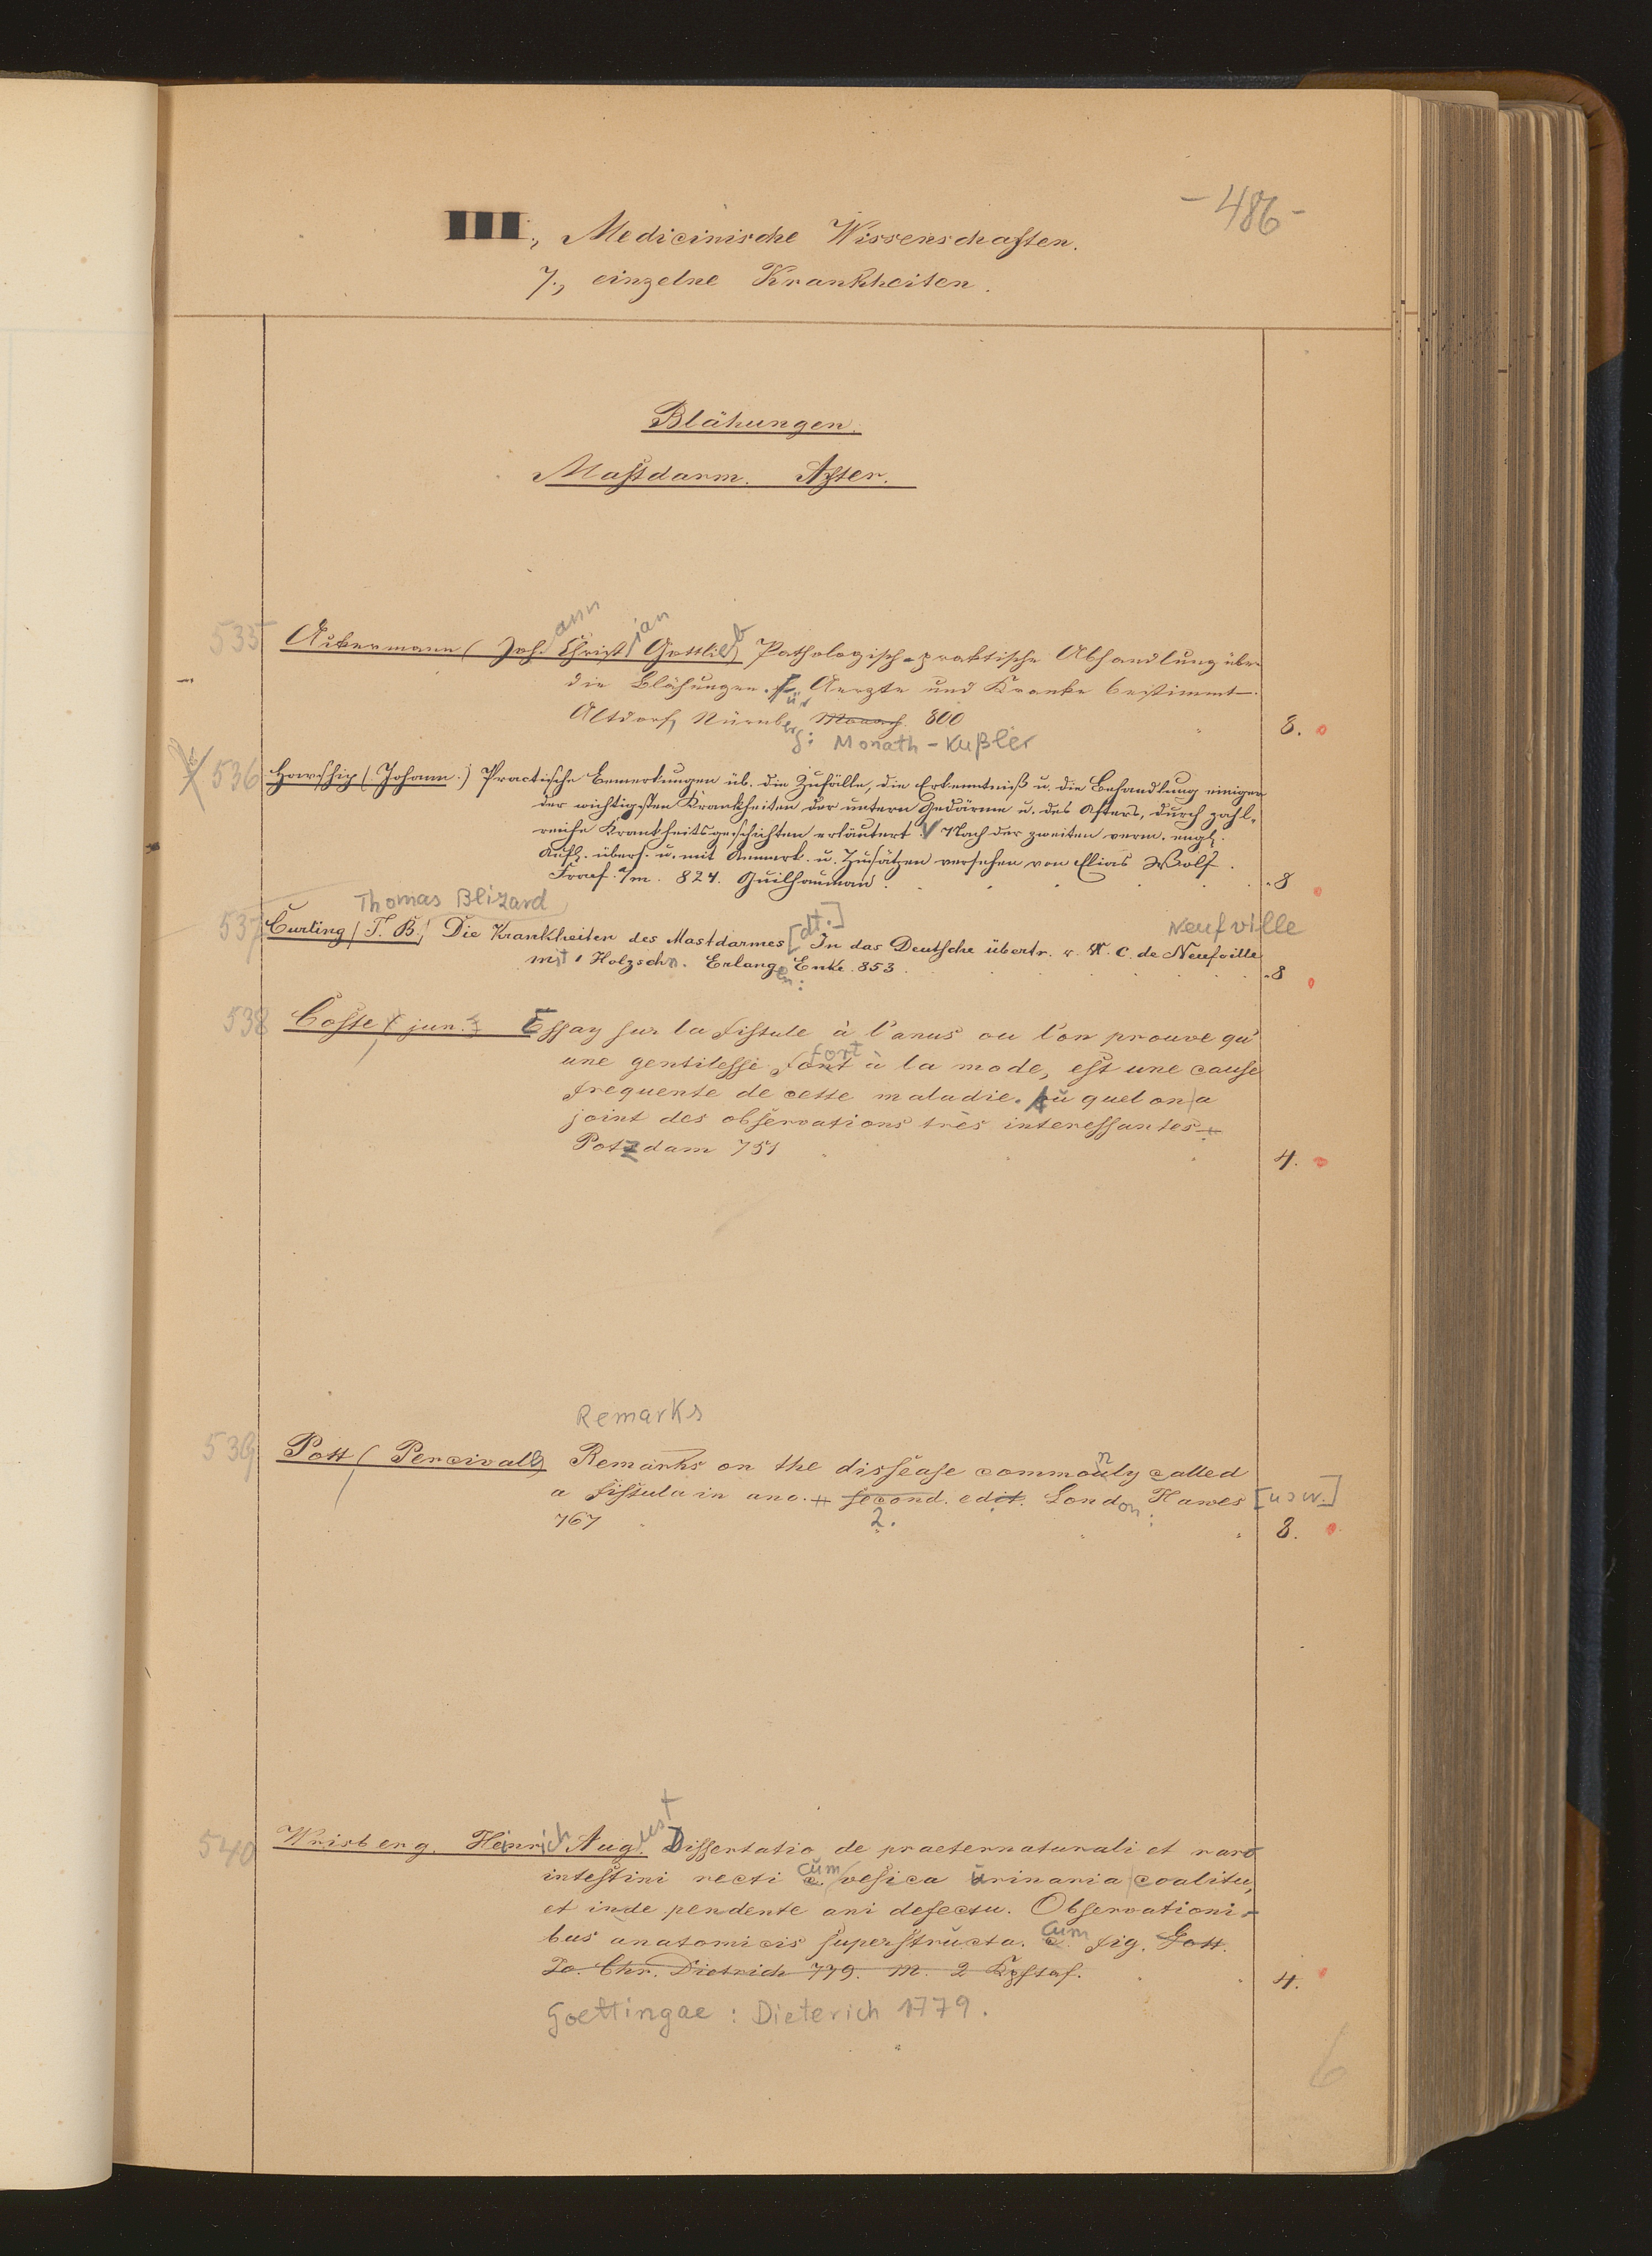 - 486 -
III., Medicinische Wissenschaften.
7., einzelne Krankheiten.
Blähungen.
Mastdarm. After.
ann ian b
535 Ackermann (Joh. Christ Gottlieb) Pathologisch-praktische Abhandlung über
die Blähungen. Für Aerzte und Kranke bestimmt.
Altdorf, Nürnberg: Monath 800 8.
Monath - Kußler
536 Howship (Johann.) Practische Bemerkungen üb. die Zufälle, die Erkenntniß u. die Behandlung einiger
der wichtigsten Krankheiten der untern Gedärme u. des Afters, durch zahl-
reiche Krankheitsgeschichten erläutert. Nach der zweiten verm. engl.
Aufl. übers. u. mit Anmerk. u. Zusätzen versehen von Elias Wolf.
Francf. a/m. 824. Guilhauman. 8
Thomas Blizard [dt.] Neufville
537 Curling (T. B.) Die Krankheiten des Mastdarmes In das Deutsche übertr. v. W. C. de Neufville
mit 1 Holzschn. Erlangen: Enke. 853. 8
538 Coste (jun.) Essay sur la fistule à l'anus ou l'on prouve qu'
fort
une gentilesse font à la mode, est une cause
frequente de cette maladie. Au quel on a
joint des observations très interessantes
Potzdam 751 4.
Remarks
539 Pott (Percivall) Remarks on the dissease commonly called
a fistula in ano. second. edit. London: Hawes [usw.]
767 2. 8.
540 Wrisberg. Heinrich August Dissertatio de praeternaturali et raro
intestini recti cum vesica urinaria coalitu,
et inde pendente ani defectu. Observationi-
bus anatomicis superstructa. Cum fig. Gott.
Io. Chr. Dietrich 779. M. 2 Kpftaf. 4.
Goettingae : Dieterich 1779.
6